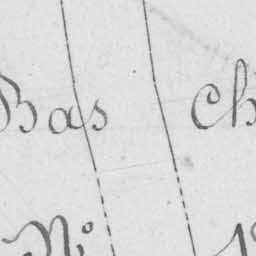 Bas Ch
N°